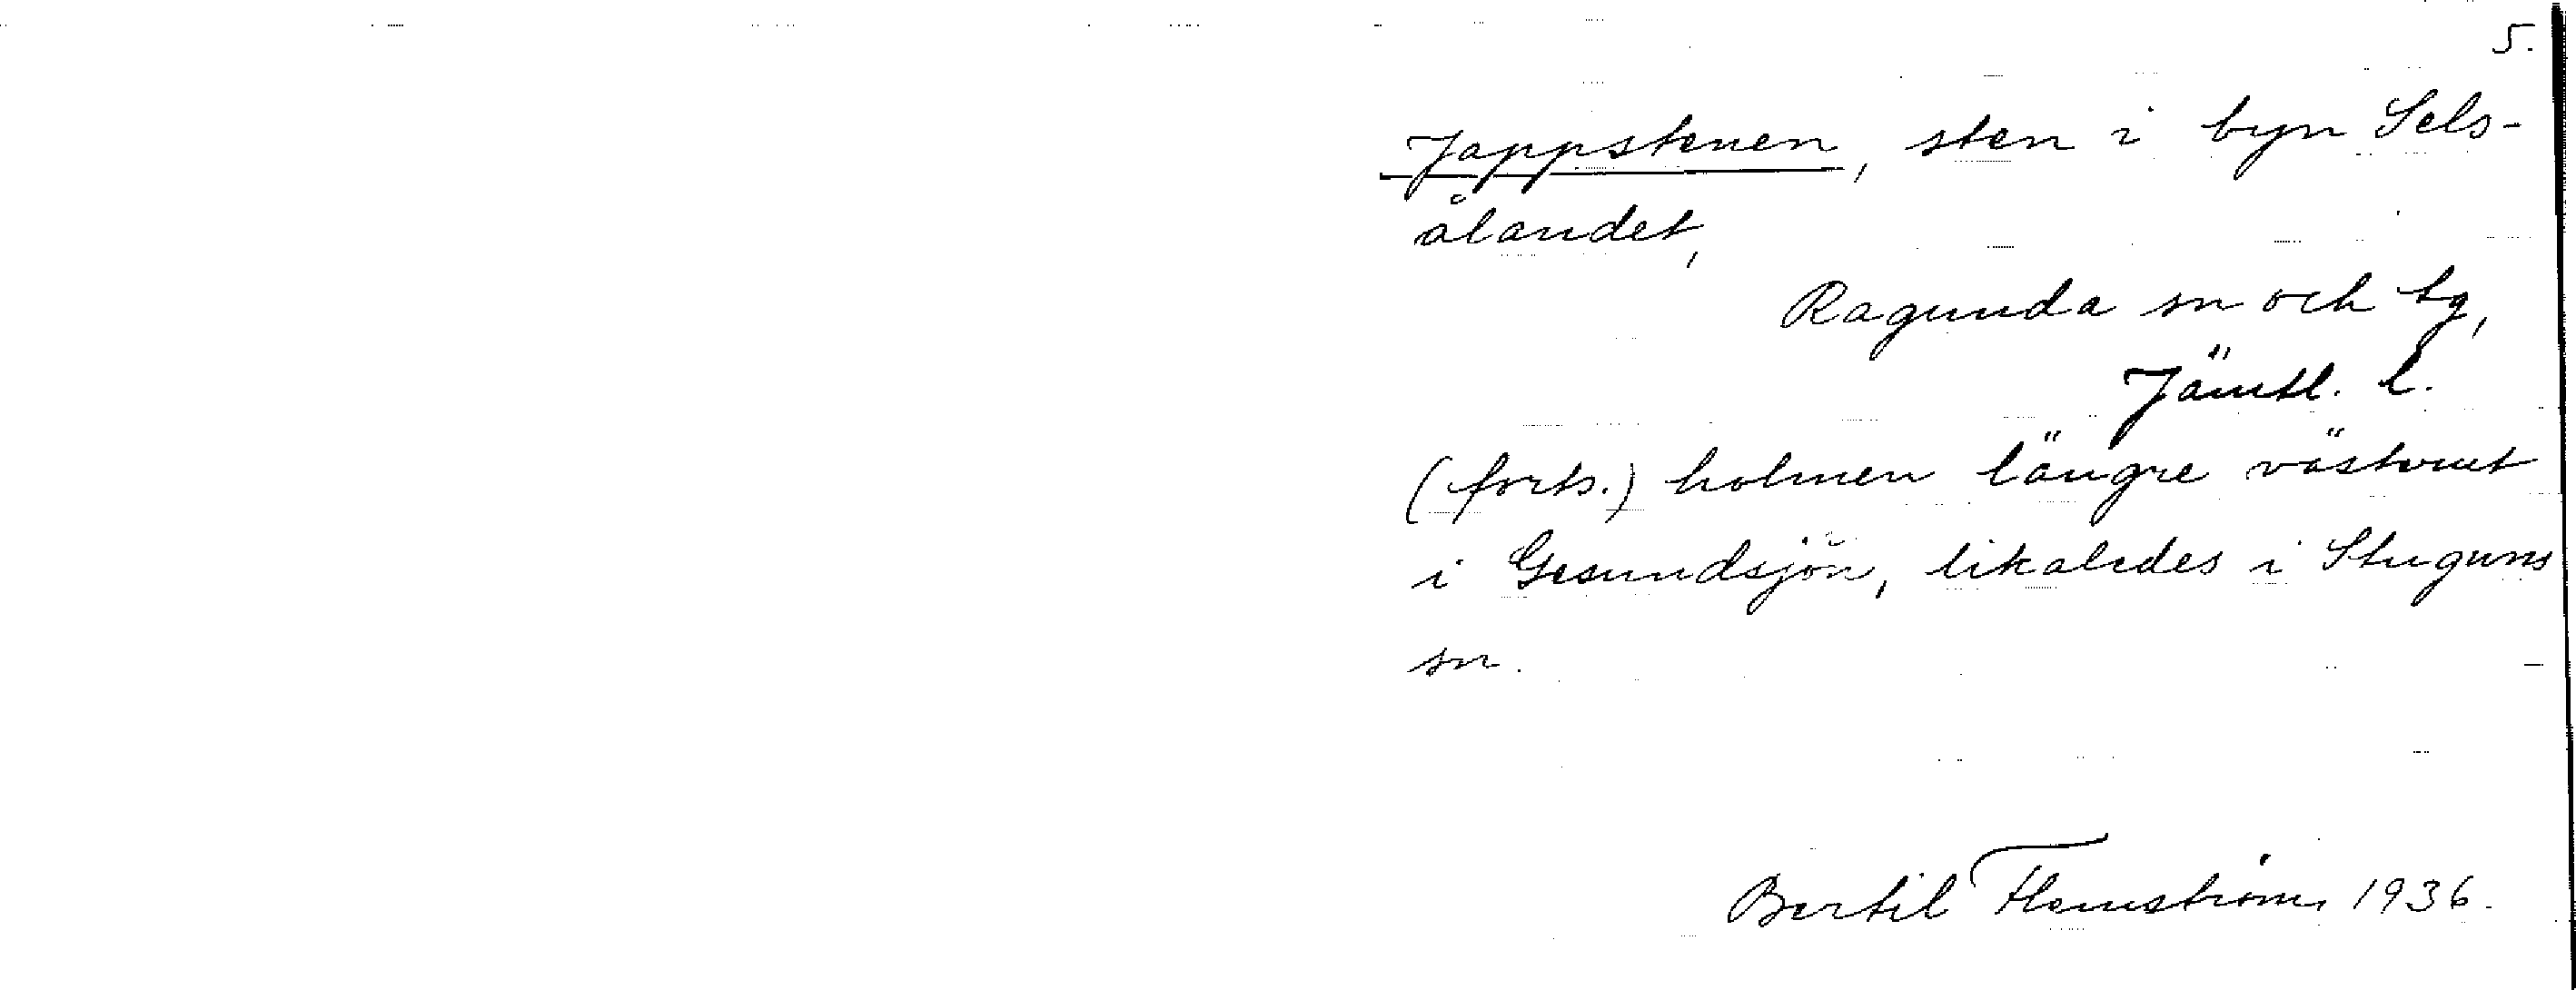 5.
Jappstenen, sten i byn Sels-
ålandet,
Ragunda sn och tg,
Jämtl. l.
(forts.) holmen längre västerut
i Gesundsjön, likaledes i Stuguns
sn.
Bertil Flemström 1936.